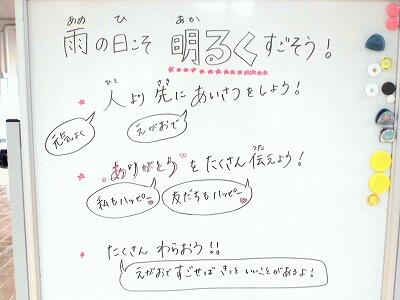 あめ ひ あか
雨の日こそ 明るくすごそう！
ひと さき
人より先にあいさつをしよう！
元気よく
えがおで
つた
ありがとうをたくさん伝えよう！
私もハッピー
友だちもハッピー
たくさん わらおう！！
えがおですごせば きっと いいことがあるよ！